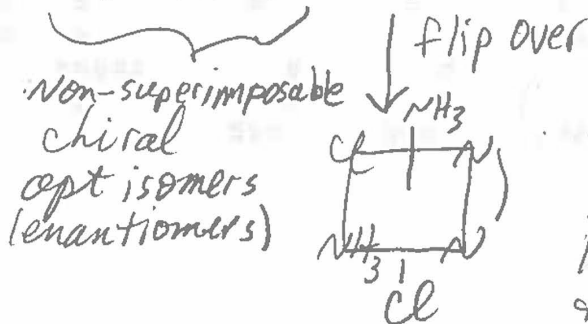 flip over
Non-superimposable
chiral
opt isomers
(enantiomers)
NH3
Cl N
NH3 N
Cl